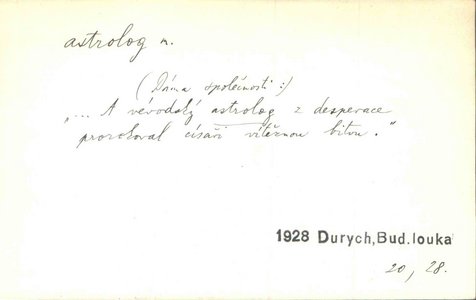 astrolog m.
(Dáma společnosti :)
„... A vévodský astrolog z desperace
prorokoval císaři vítěznou bitvu."
1928 Durych, Bud. louka
20, 28.